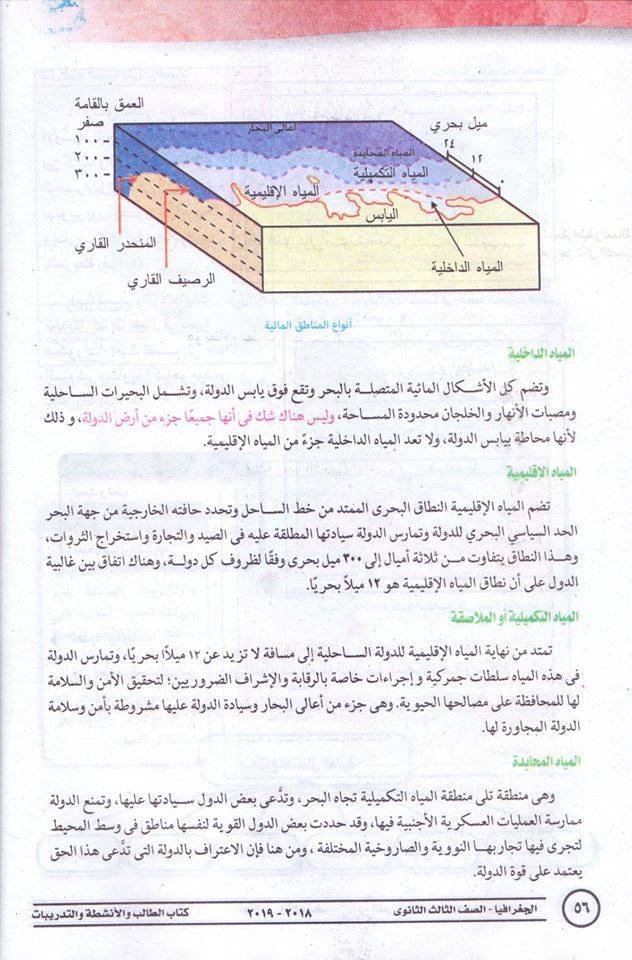 العمق بالقامة
صفر
١٠٠ -
٢٠٠ -
٣٠٠ -
ميل بحري
٢٤
١٢
٠
أعالى البحار
المياه المحايدة
المياه التكميلية
المياه الإقليمية
اليابس
المياه الداخلية
المنحدر القاري
الرصيف القاري
أنواع المناطق المائية
المياه الداخلية
وتضم كل الأشكال المائية المتصلة بالبحر وتقع فوق يابس الدولة، وتشمل البحيرات الساحلية
ومصبات الأنهار والخلجان محدودة المساحة، وليس هناك شك فى أنها جميعًا جزء من أرض الدولة، و ذلك
لأنها محاطة بيابس الدولة، ولا تعد المياه الداخلية جزءً من المياه الإقليمية.
المياه الاقليمية
تضم المياه الإقليمية النطاق البحرى الممتد من خط الساحل وتحدد حافته الخارجية من جهة البحر
الحد السياسي البحري للدولة وتمارس الدولة سيادتها المطلقة عليه فى الصيد والتجارة واستخراج الثروات،
وهذا النطاق يتفاوت من ثلاثة أميال إلى ٣٠٠ ميل بحرى وفقًا لظروف كل دولة، وهناك اتفاق بين غالبية
الدول على أن نطاق المياه الإقليمية هو ١٢ ميلاً بحريًا.
المياه التكميلية أو الملاصقة
تمتد من نهاية المياه الإقليمية للدولة الساحلية إلى مسافة لا تزيد عن ١٢ ميلاً بحريًا، وتمارس الدولة
فى هذه المياه سلطات جمركية و إجراءات خاصة بالرقابة والإشراف الضروريين؛ لتحقيق الأمن والسلامة
لها للمحافظة على مصالحها الحيوية. وهى جزء من أعالى البحار وسيادة الدولة عليها مشروطة بأمن وسلامة
الدولة المجاورة لها.
المياه المحايدة
وهى منطقة تلى منطقة المياه التكميلية تجاه البحر، وتدَّعى بعض الدول سيادتها عليها، وتمنع الدولة
ممارسة العمليات العسكرية الأجنبية فيها، وقد حددت بعض الدول القوية لنفسها مناطق فى وسط المحيط
لتجرى فيها تجاربها النووية والصاروخية المختلفة ، ومن هنا فإن الاعتراف بالدولة التى تدَّعى هذا الحق
يعتمد على قوة الدولة.
٥٦
الجغرافيا - الصف الثالث الثانوى
٢٠١٨ - ٢٠١٩
كتاب الطالب والأنشطة والتدريبات